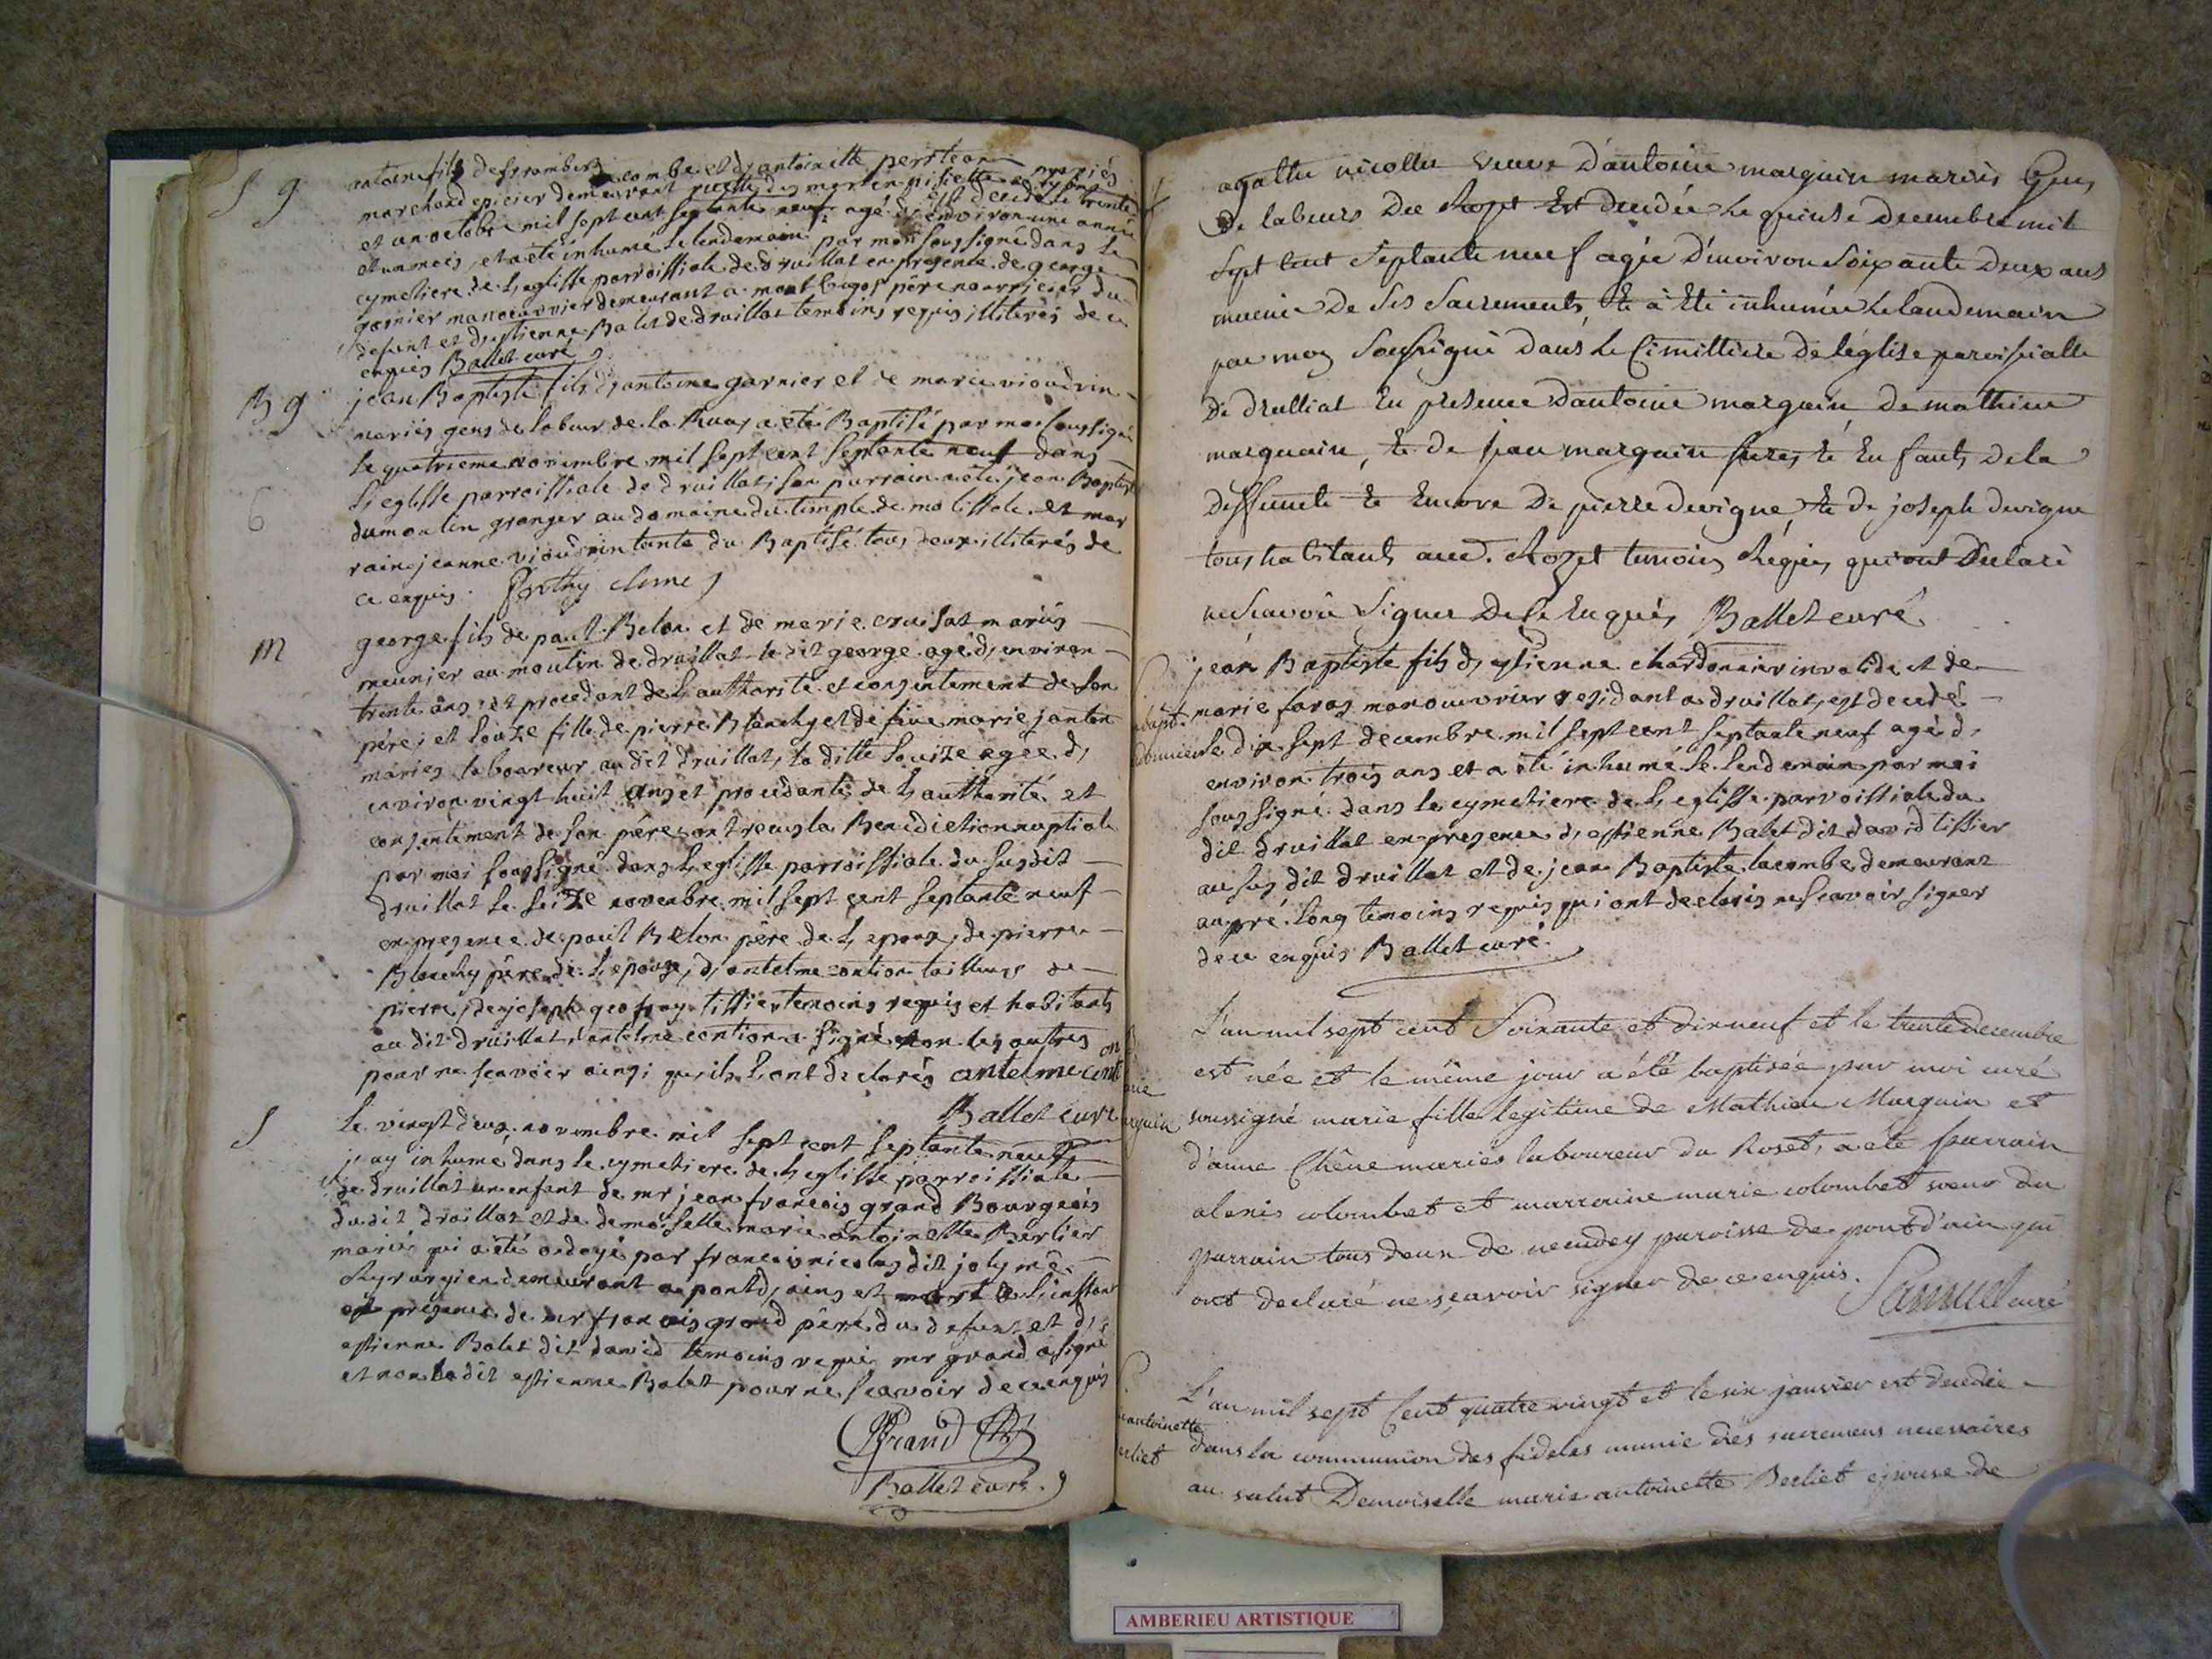 S g
antoine fils de lacombe et d, antoinette mariés
marchand epicier demeurant est decedé le trente
et un octobre mil sept cent septante neuf agé d, environ une année
et un mois, et a été inhumé le lendemain par moi soussigné dans le
cymetiere de l, eglisse parroissiale de druillat en presence de george
garnier manouvrier demeurant a mont père nourricier du
defunt et d, estienne Balet de druillat temoins requis illiterés de ce
enquis Ballet curé
B g
jean Baptiste fils d, antoine garnier et de marie vioudrin
mariés gens de labeur de la Ruaz a été Baptisé par moi soussigné
le quatrieme novembre mil sept cent septante neuf dans
l, eglisse parroissiale de druillat, son parrain a été jean Baptiste
6
dumoulin granger au domaine du temple de molissole et mar
raine jeanne vioudrin tante du Baptisé tous deux illiterés de
ce enquis.
m
george fils de paul Belon et de marie cruisat mariés
meunier au moulin de druillat le dit george agé d, environ
trente ans et procedant de l, authorité et consentement de son
père, et Louize fille de pierre Blanchy et de feue marie janton
mariés laboureur au dit druillat, la ditte Louize agee d,
environ vingt huit ans et procedante de l, authorité et
consentement de son père ont reçus la Benediction nuptiale
par moi soussigné dans l, eglisse parroissiale du susdit
druillat le seize novembre mil sept cent septante neuf
en presence de paul Belon père de l, epoux, de pierre
Blanchy père de l, epouze, d, antelme contion tailleur de
pierre, de joseph geofray tissier temoins requis et habitants
au dit druillat, antelme contion a signé et non les autres
pour ne scavoir ainsi qu, ils l, ont declarés antelme contion
Ballet curé
S
le vingt deux novembre mil sept cent septante neuf
j, ay inhumé dans le cymetiere de l, eglisse parroissiale
de druillat un enfant de mr jean francois grand Bourgeois
dudit druillat et de demoiselle marie antoinette Berlier
mariés qui a été ondoyé par francois nicolas dit joly me.
chyrurgien demeurant a pont d, ains et mort a l, instant
en presence de mr francois grand père du defunt et d,
estienne Balet dit david temoins requis mr grand a signé
et non le dit estienne Balet pour ne scavoir de ce enquis
Grand
Ballet curé.
agathe nicollu veuve D'antoine marquin mariés Gens
de labeurs Du Rozet Est decedée le quinze Decembre mil
sept cent septante neuf agée D'environ soixante Deux ans
munie De ses sacrements, Et à Eté inhumée le landemain
par moy soussigné Dans le Cimittiere De l'église paroissialle
De druillat En presence D'antoine marquin, De mathieu
marquin, Et de jean marquin freres Et Enfants De la
Deffunte Et Encore De pierre Devigne, Et de joseph devigne
tous habitants au d. Rozet temoins Requis qui ont Declaré
ne scavoir signer De ce Enquis Ballet curé.
jean Baptiste fils d, estienne chardonnier invalide et de
marie faraz manouvrier residant a druillat, est decedé
le dix sept decembre mil sept cent septante neuf agé d,
environ trois ans et a été inhumé le lendemain par moi
soussigné dans le cymetiere de l, eglisse parroissiale du
dit druillat en presence d, estienne Balet dit david tissier
au sus dit druillat et de jean Baptiste lacombe demeurant
au pré long temoins requis qui ont declarés ne scavoir signer
de ce enquis Ballet curé.
L'an mil sept cent Soixante et dixneuf et le trente decembre
est née et le même jour a été baptisée par moi curé
soussigné marie fille legitime de Mathieu Marquin et
d'anne Chêne mariés laboureur du Roset, a été parrain
alexis colombet et marraine marie colombet soeur du
parrain tous deux de neuvdey paroisse de pont d'ain qui
ont declaré ne sçavoir signer de ce enquis.
Samuel curé
L'an mil sept Cent quatre vingt et le six janvier est decedée
antoinette
dans la communion des fideles munie des sacremens necessaires
erliet
au salut Demoiselle marie antoinette Berliet epouse de
AMBERIEU ARTISTIQUE